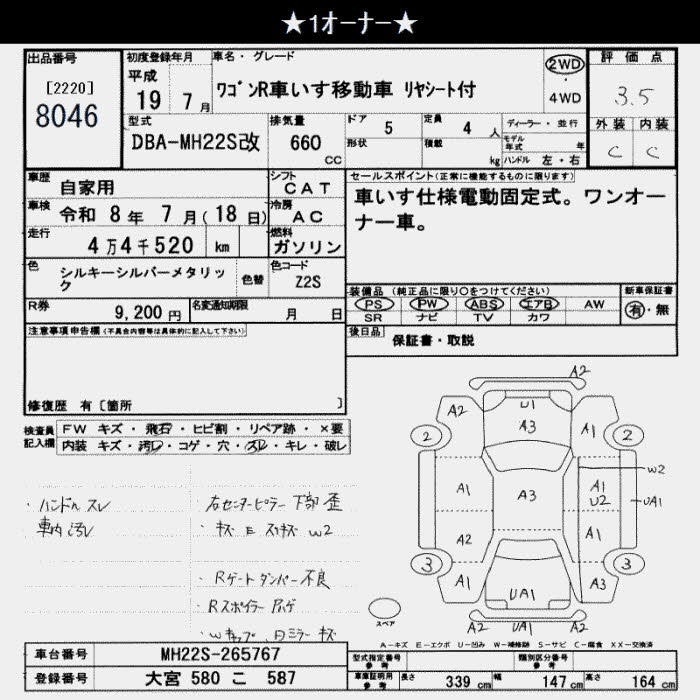 ★1ｵｰﾅｰ★
出品番号
[2220]
8046
初度登録年月
平成
19 7 月
車名・グレード
ﾜｺﾞﾝR車いす移動車 ﾘﾔｼｰﾄ付
2WD
・
4WD
評価点
3.5
外装 内装
C C
型式
DBA-MH22S改
排気量
660
cc
ドア
5
形状
定員
4 人
積載
kg
ディーラー・並行
モデル年式 年
ハンドル 左・右
車歴
自家用
シフト
CAT
車検
令和 8 年 7 月(18 日)
冷房
AC
走行
4 万 4 千 520 km
燃料
ガソリン
色
シルキーシルバーメタリック
色替
色コード
Z2S
R券
9,200 円
名変通知期限
月 日
セールスポイント(正常に機能するものに限ります)
車いす仕様電動固定式。ワンオーナー車。
装備品 (純正品に限り○をつけてください)
PS PW ABS エアB AW
SR ナビ TV カワ
新車保証書
有・無
後日品
保証書・取説
注意事項申告欄(不具合内容等は具体的に記入して下さい)
修復歴 有〔箇所 〕
検査員記入欄
FW キズ・飛石・ヒビ割・リペア跡・×要
内装 キズ・汚レ・コゲ・穴・スレ・キレ・破レ
・ハンドル スレ
車内 汚レ
・右センターピラー 下部 歪
・キズ E スリキズ W2
・Rゲートダンパー不良
・Rスポイラー
A2
U1
A2
A3
A1
2
2
W2
A1
A3
A1
U2
UA1
A2
A1
3
3
A1
UA1
A3
A2
UA1
A2
スペア
A-キズ E-エクボ U-凹み W-補修跡 S-サビ C-腐食 XX-交換済
車台番号
MH22S-265767
登録番号
大宮 580 こ 587
型式指定番号
参考
類別区分番号
参考
車庫証明用
参考
長さ 339 cm
幅 147 cm
高さ 164 cm